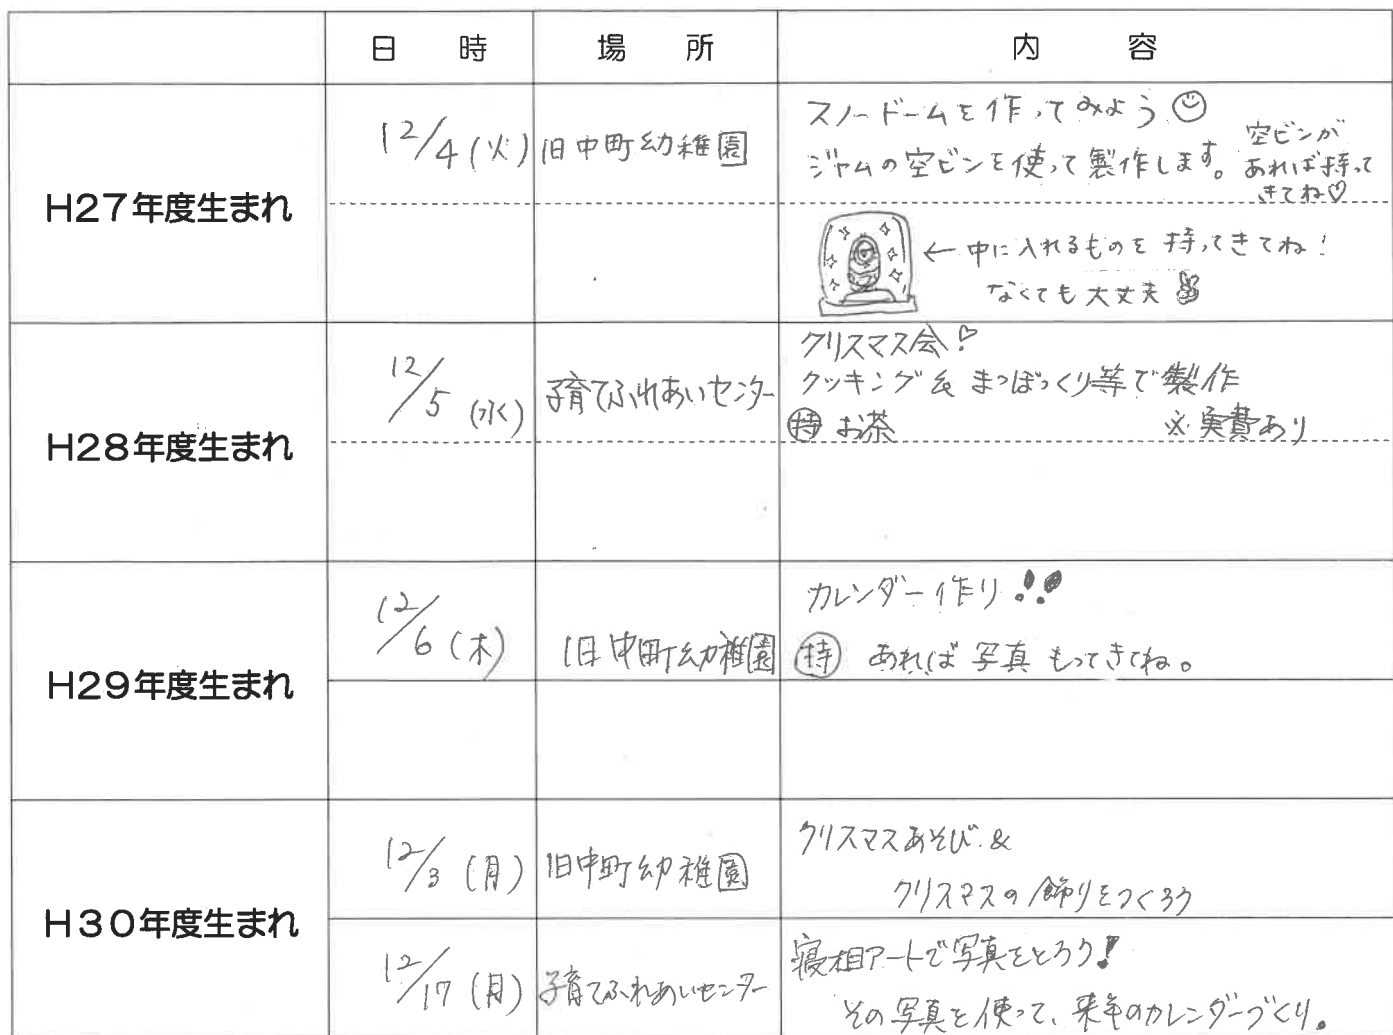 日 時 場 所 内 容
H27年度生まれ
12/4(火) 旧中町幼稚園
スノードームを作ってみよう
ジャムの空ビンを使って製作します。
空ビンが
あれば持って
きてね♡
←中に入れるものを持ってきてね!
なくても大丈夫
H28年度生まれ
12/5(水) 子育てふれあいセンター
クリスマス会!
クッキング& まつぼっくり等で製作
持 お茶 ※実費あり
H29年度生まれ
12/6(木) 旧中町幼稚園
カレンダー作り!!
持 あれば写真もってきてね。
H30年度生まれ
12/3(月) 旧中町幼稚園
クリスマスあそび&
クリスマスの飾りをつくろう
12/17(月) 子育てふれあいセンター
寝相アートで写真をとろう!
その写真を使って、来年のカレンダーづくり。